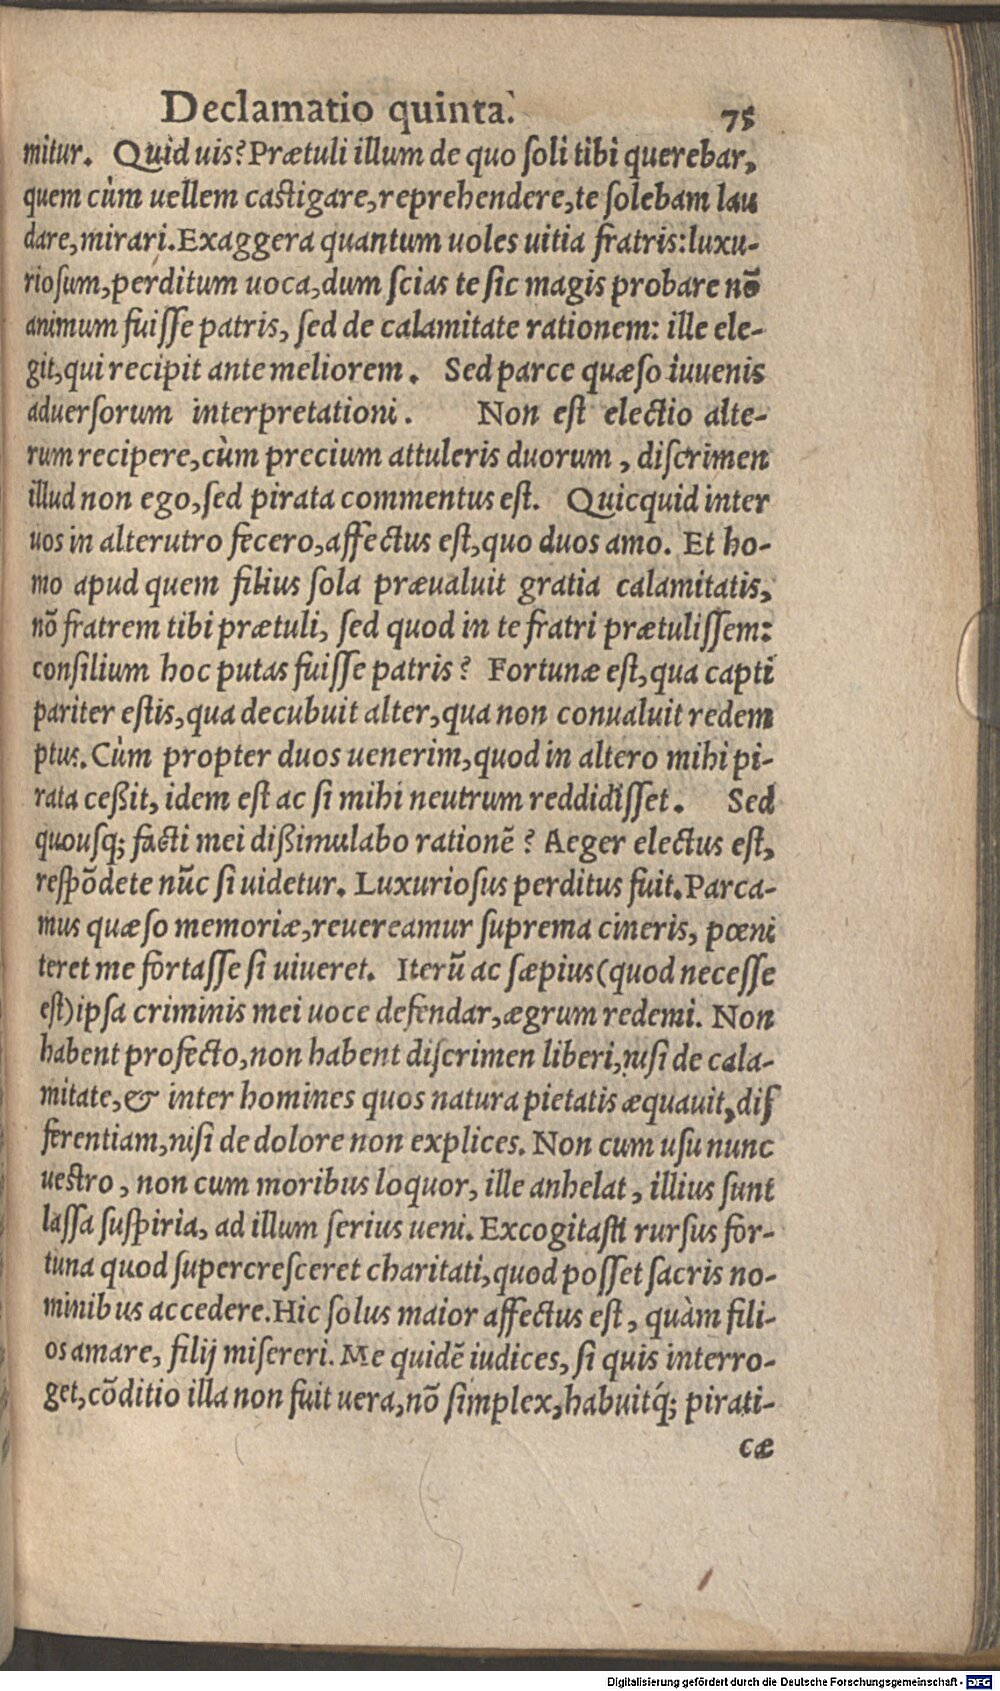 Declamatio quinta. 75
mitur. Quid uis? Prætuli illum de quo ſoli tibi querebar,
quem cùm uellem caſtigare, reprehendere, te ſolebam lau
dare, mirari. Exaggera quantum uoles uitia fratris: luxu-
rioſum, perditum uoca, dum ſcias te ſic magis probare nō
animum fuiſſe patris, ſed de calamitate rationem: ille ele-
git, qui recipit ante meliorem. Sed parce quæſo iuuenis
aduerſorum interpretationi. Non eſt electio alte-
rum recipere, cùm precium attuleris duorum, diſcrimen
illud non ego, ſed pirata commentus eſt. Quicquid inter
uos in alterutro fecero, affectus eſt, quo duos amo. Et ho-
mo apud quem filius ſola præualuit gratia calamitatis,
nō fratrem tibi prætuli, ſed quod in te fratri prætuliſſem:
conſilium hoc putas fuiſſe patris? Fortunæ eſt, qua capti
pariter eſtis, qua decubuit alter, qua non conualuit redem
ptus. Cùm propter duos uenerim, quod in altero mihi pi-
rata ceßit, idem eſt ac ſi mihi neutrum reddidiſſet. Sed
quouſq; facti mei dißimulabo rationē? Aeger electus eſt,
reſpōdete nūc ſi uidetur. Luxurioſus perditus fuit. Parca-
mus quæſo memoriæ, reuereamur ſuprema cineris, pœni
teret me fortaſſe ſi uiueret. Iterū ac ſæpius (quod neceſſe
eſt) ipſa criminis mei uoce defendar, ægrum redemi. Non
habent profecto, non habent diſcrimen liberi, niſi de cala-
mitate, & inter homines quos natura pietatis æquauit, diſ
ferentiam, niſi de dolore non explices. Non cum uſu nunc
ueſtro, non cum moribus loquor, ille anhelat, illius ſunt
laſſa ſuſpiria, ad illum ſerius ueni. Excogitaſti rurſus for-
tuna quod ſupercreſceret charitati, quod poſſet ſacris no-
minibus accedere. Hic ſolus maior affectus eſt, quàm fili-
os amare, filij miſereri. Me quidē iudices, ſi quis interro-
get, cōditio illa non fuit uera, nō ſimplex, habuitq́; pirati-
cæ
Digitalisierung gefördert durch die Deutsche Forschungsgemeinschaft - DFG